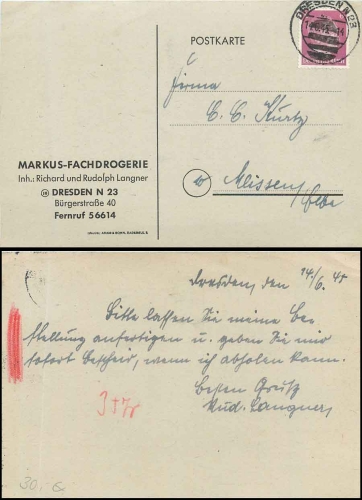 POSTKARTE
DRESDEN N 23
Firma
C. C. Kurtz
Meissen/
Elbe
MARKUS-FACHDROGERIE
Inh.: Richard und Rudolph Langner
DRESDEN N 23
Bürgerstraße 40
Fernruf 56614
Dresden, den 14/6. 45
Bitte lassen Sie meine Be-
stellung anfertigen u. geben Sie mir
sofort Bescheid, wenn ich abholen kann.
Besten Gruß
Rud. Langner,
30.-